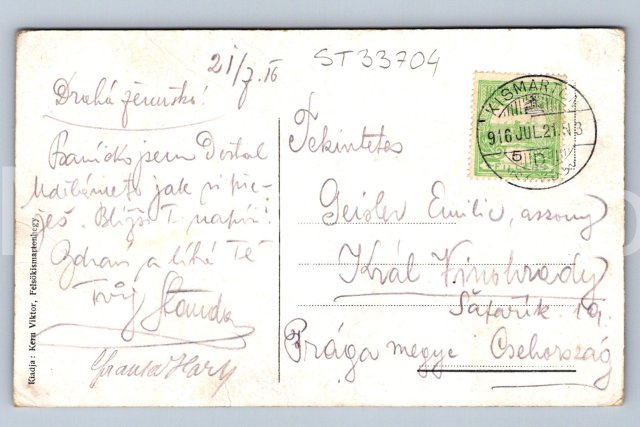 21/7. 16
ST33704
Drahá ženuško!
Psaníčko jsem Dostal
Udělám to jak si pře-
ješ. Bližší T. napíši!
Zdraví a líbá Tě
Tvůj Standa
Kiadja: Kern Viktor, Felsőkismartonhegy.
KISMARTON
916 JUL. 21. N 3
Tekintetes
Geisler Emilie, asszony
Král Vinohrady
Šafařík 19.
Prága megye Csehország